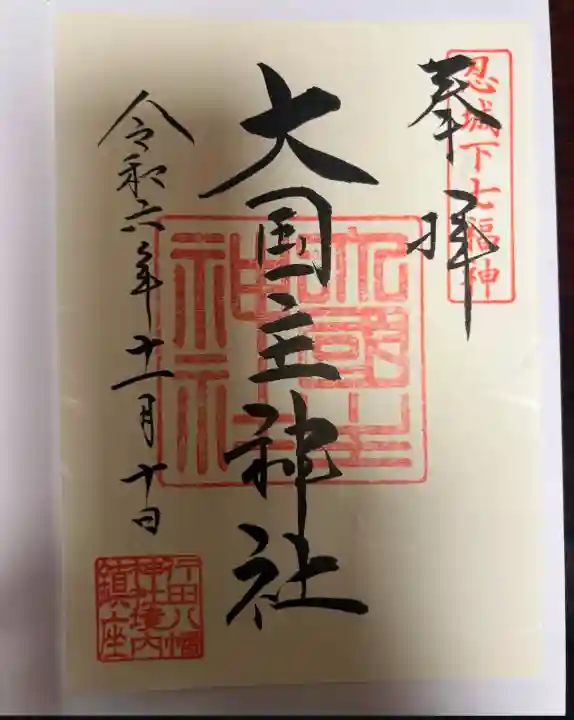 忍城下七福神
奉拝
大国主神社
大國主神社
令和六年十一月十日
行田八幡
神社境内
鎮座